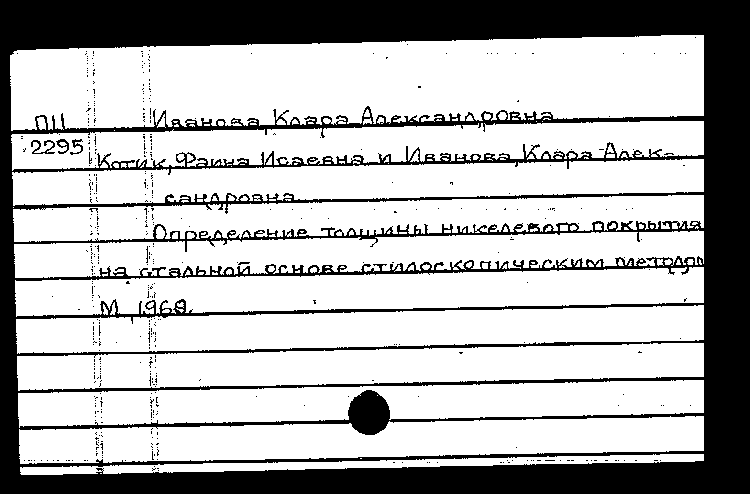 П11 Иванова, Клара Александровна
2295 Котик, Фаина Исаевна и Иванова, Клара Алек-
сандровна.
Определение толщины никелевого покрытия
на стальной основе стилоскопическим методом
М., 1968.